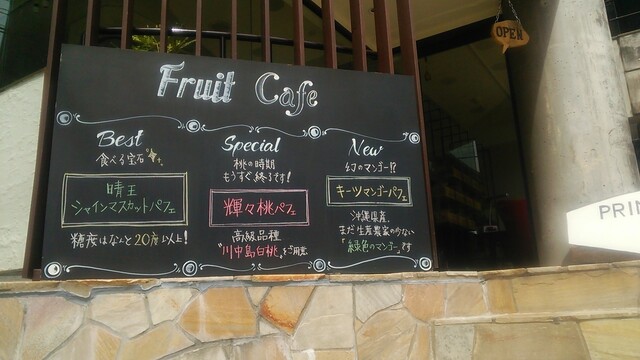 Fruit Cafe
OPEN
Best
食べる宝石
晴王
シャインマスカットパフェ
糖度はなんと20度以上!
Special
桃の時期
もうすぐ終了です!
輝々桃パフェ
高級品種
"川中島白桃"をご用意
New
幻のマンゴー!?
キーツマンゴーパフェ
沖縄県産、
まだ生産農家の少ない
「緑色のマンゴー」です
PRIN